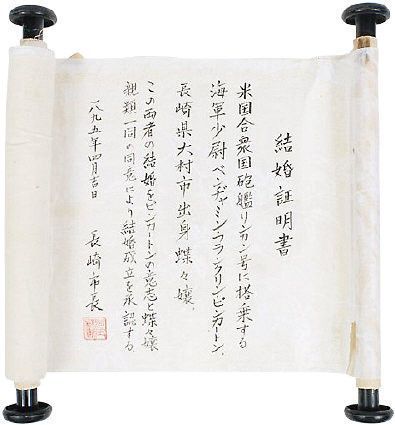 結婚証明書
米国合衆国砲艦リンカン号に搭乗する
海軍少尉ベンヂャミンフランクリンピンカートン、
長崎県大村市出身蝶々嬢、
この両者の結婚をピンカートンの意志と蝶々嬢
親類一同の同意により結婚成立を承認する。
一八九五年四月吉日
長崎市長